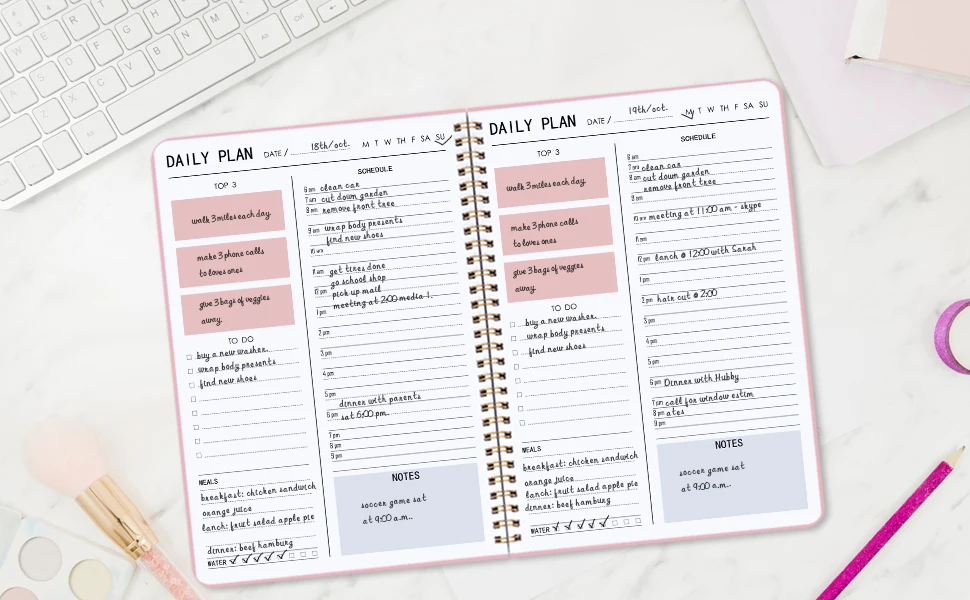 DAILY PLAN
DATE / 18th/oct. M T W TH F SA SU
TOP 3
walk 3 miles each day.
make 3 phone calls
to loves ones
give 3 bags of veggies
away.
TO DO
buy a new washer.
wrap body presents
find new shoes
MEALS
breakfast: chicken sandwich
orange juice
lanch: fruit salad apple pie
dinner: beef hamburg
WATER
SCHEDULE
6 am clean car
7 am cut down garden
8 am remove front tree
9 am wrap body presents
find new shoes
10 am
11 am get tires done
go school shop
12 pm pick up mail
meeting at 2:00 media !.
1 pm
2 pm
3 pm
4 pm
5 pm
dinner with parents
6 pm sat 6:00 pm.
7 pm
8 pm
9 pm
NOTES
soccer game sat
at 9:00 a.m..
DAILY PLAN
DATE / 19th/oct. M T W TH F SA SU
TOP 3
walk 3 miles each day.
make 3 phone calls
to loves ones
give 3 bags of veggies
away.
TO DO
buy a new washer.
wrap body presents
find new shoes
MEALS
breakfast: chicken sandwich
orange juice
lanch: fruit salad apple pie
dinner: beef hamburg
WATER
SCHEDULE
6 am
7 am clean car
8 am cut down garden
remove front tree
9 am
10 am meeting at 11:00 am - skype
11 am
12 pm lanch @ 12:00 with Sarah
1 pm
2 pm hair cut @ 2:00
3 pm
4 pm
5 pm
6 pm Dinner with Hubby
7 pm call for window estim
8 pm ates
9 pm
NOTES
soccer game sat
at 9:00 a.m..